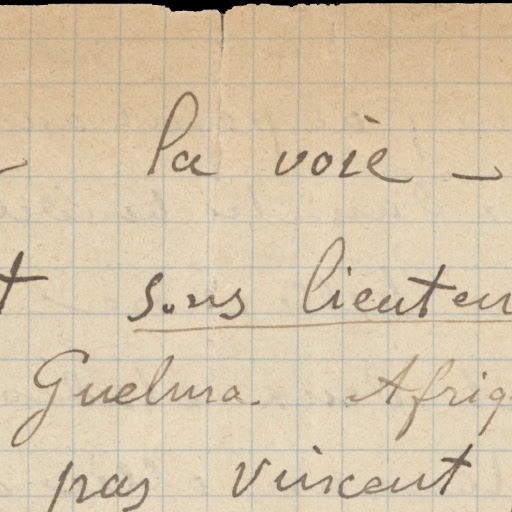 la voie -
sous lieuten
Guelma Afriq
pas vincent